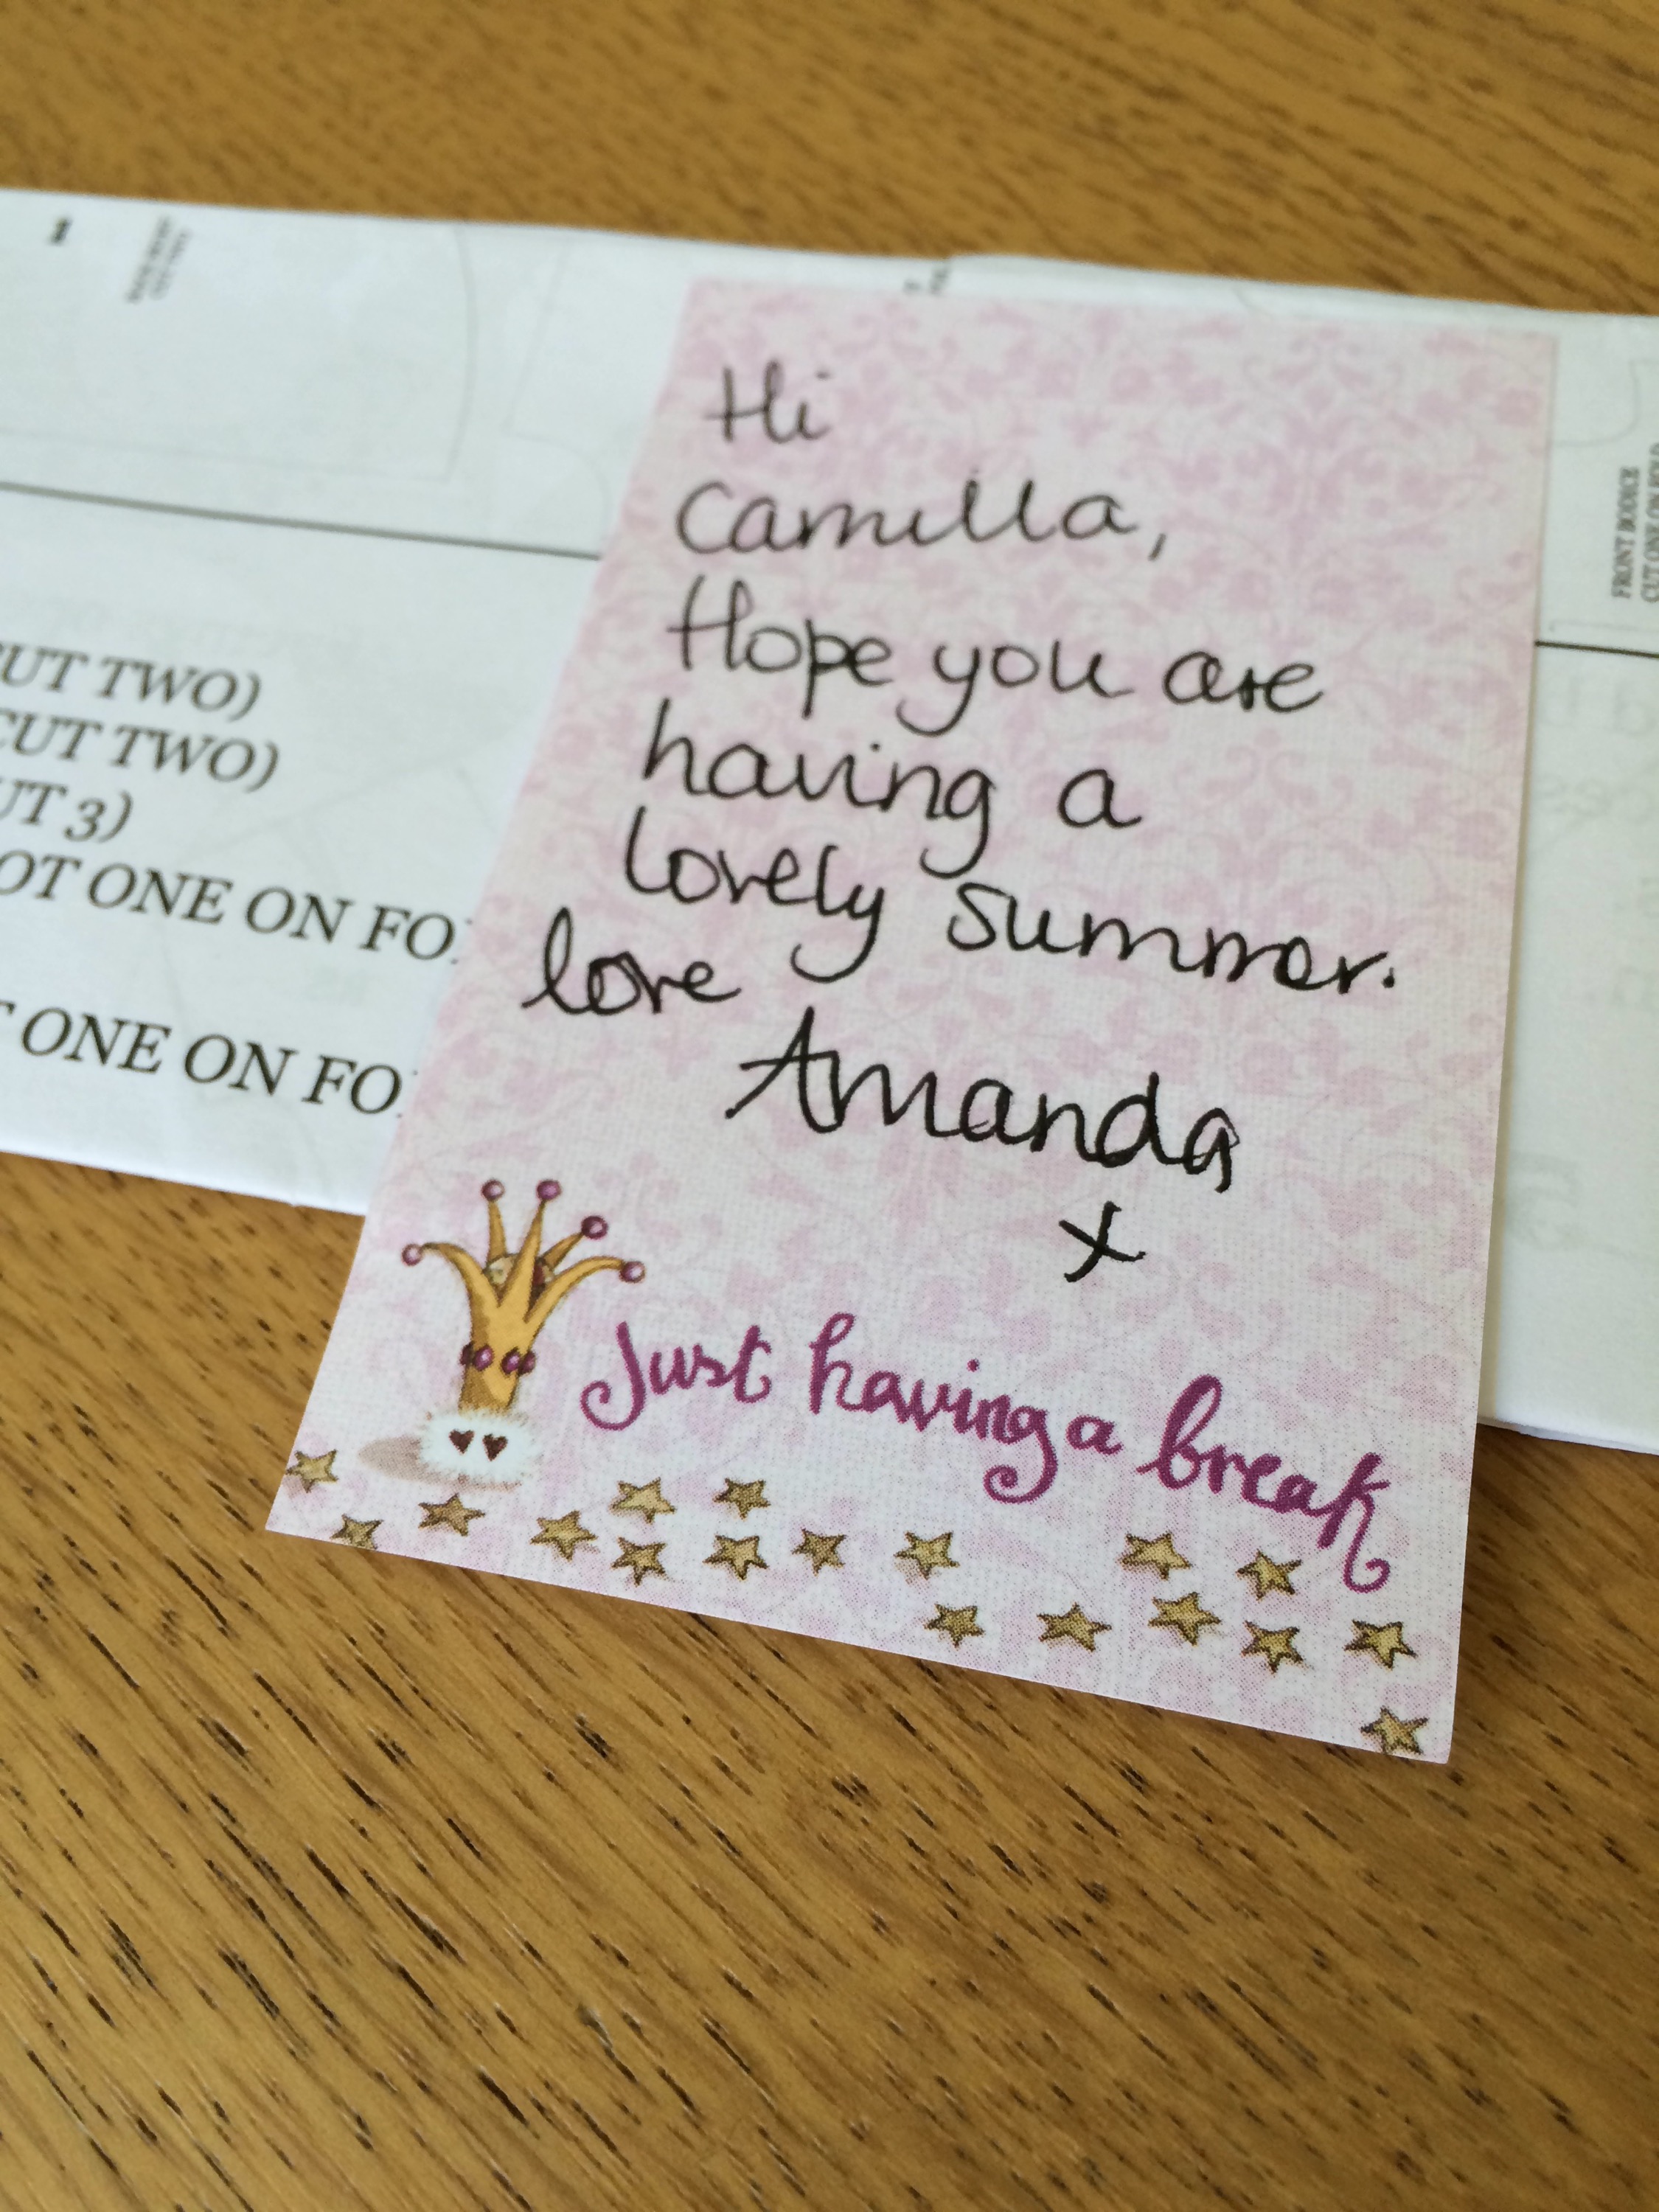 Hi
Camilla,
Hope you are
having a
lovely summer.
love
Amanda
x
Just having a break
CUT TWO)
CUT TWO)
3)
ONE ON
ONE ON
FRONT BODICE
CUT ONE ON FOLD